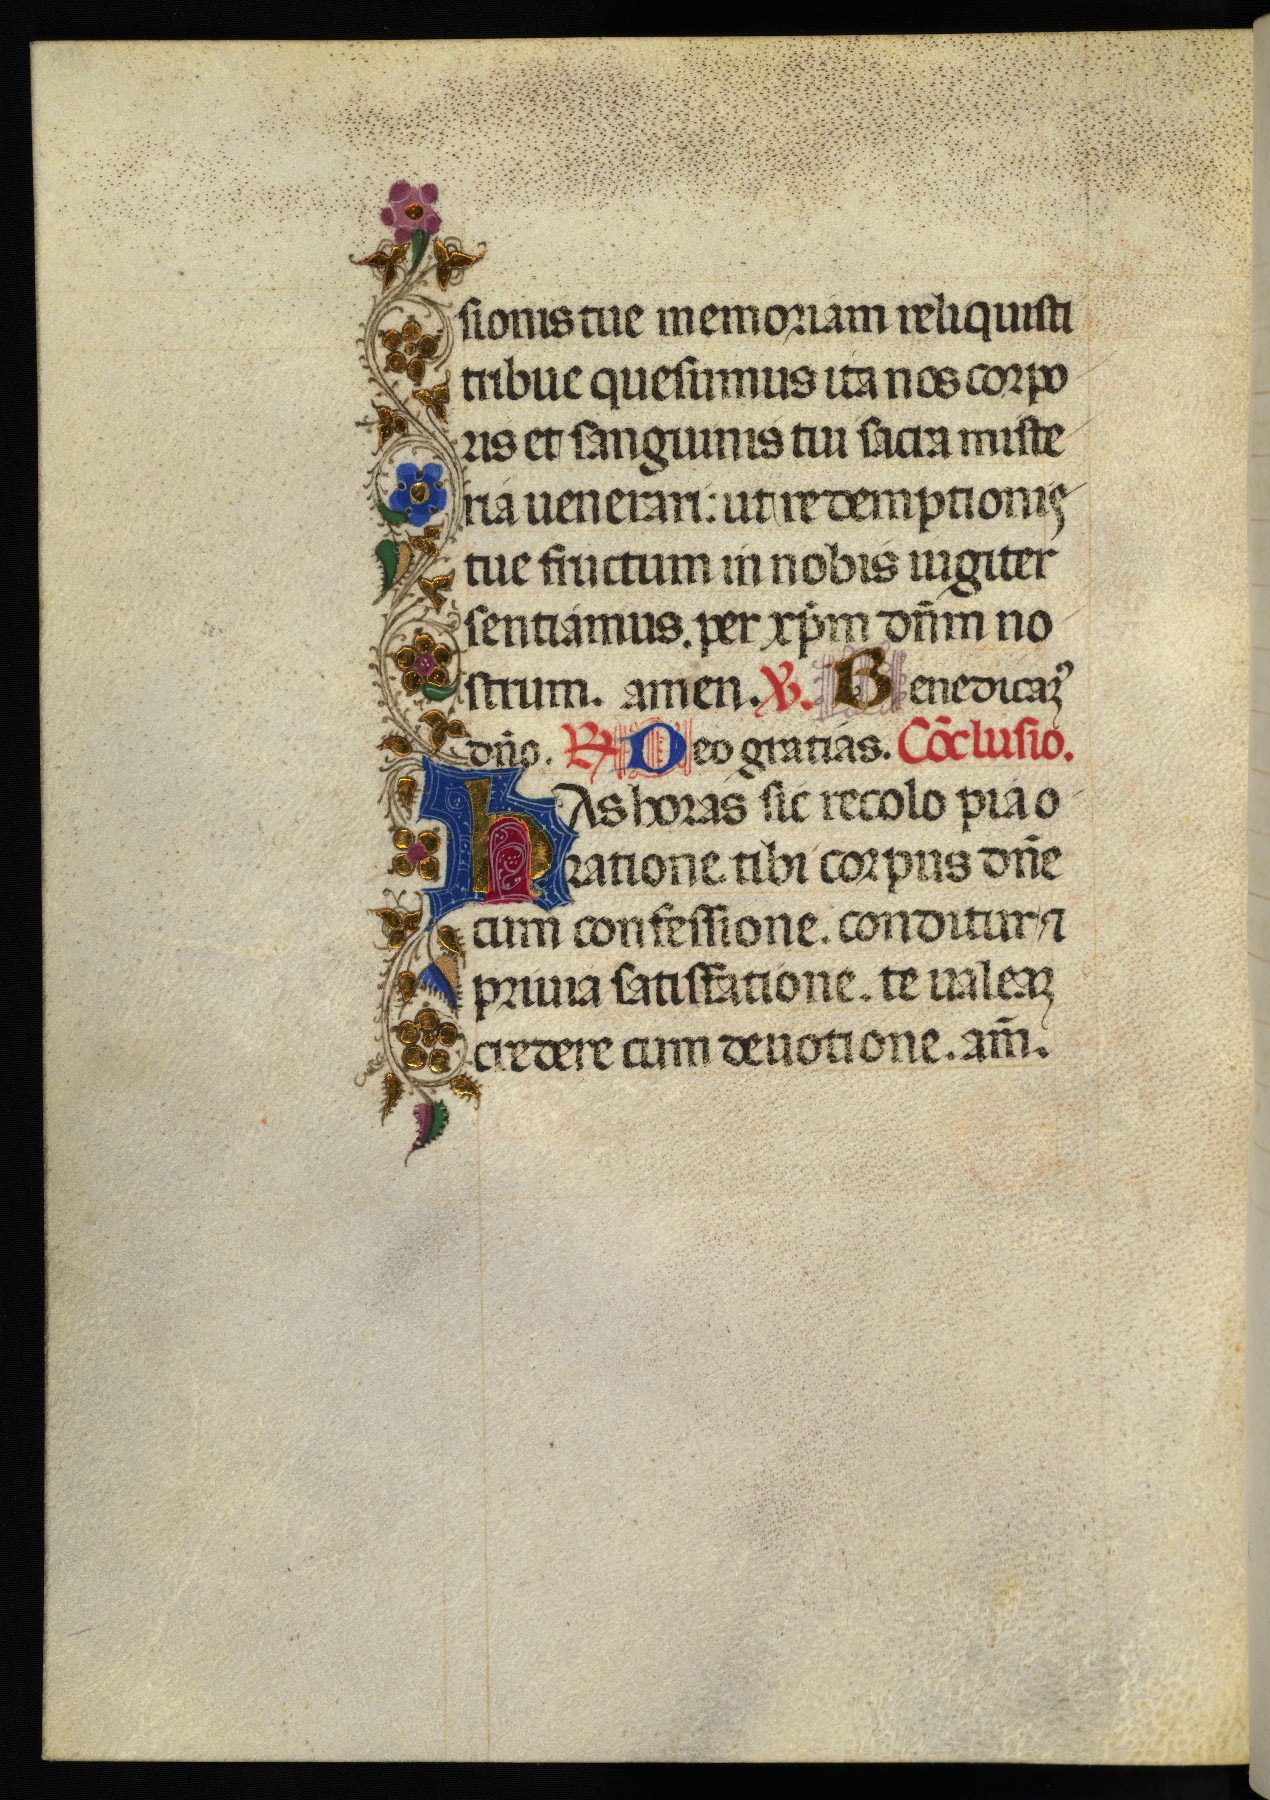 sionis tue memoriam reliquisti
tribue quesumus ita nos corpo
ris et sanguinis tui sacra miste
ria uenerari: ut redemptionis
tue fructum in nobis iugiter
sentiamus. per xp̄m dn̄m no
strum. amen. ℣. Benedicam⁹
dn̄o. ℟ Deo gratias. Cōclusio.
HAs horas sic recolo pia o
ratione tibi corpus dn̄e
cum confessione. conditur ⁊
priuia satisfatione. te ualeaꝫ
credere cum deuotione. am̄.